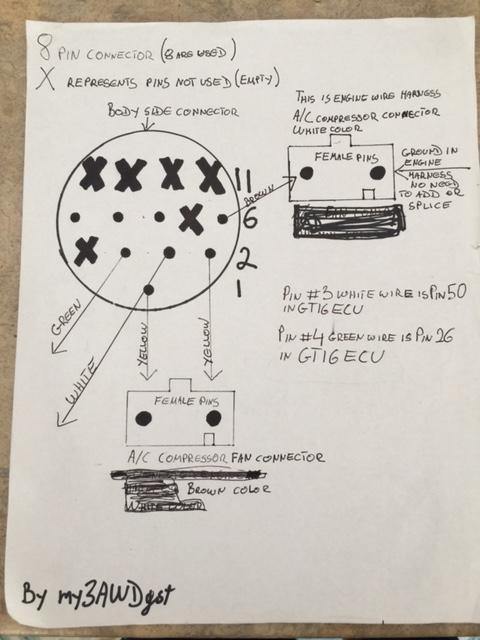 8 PIN CONNECTOR (8 ARE USED)
X REPRESENTS PINS NOT USED (EMPTY)
BODY SIDE CONNECTOR
THIS IS ENGINE WIRE HARNESS
A/C COMPRESSOR CONNECTOR
WHITE COLOR
FEMALE PINS
GROUND IN
ENGINE
HARNESS NO NEED
TO ADD OR
SPLICE
11
BROWN
6
2
1
GREEN
WHITE
YELLOW
YELLOW
PIN #3 WHITE WIRE IS PIN 50
IN GT16 ECU
PIN #4 GREEN WIRE IS PIN 26
IN GT16 ECU
FEMALE PINS
A/C COMPRESSOR FAN CONNECTOR
BROWN COLOR
WHITE COLOR
By my3AWDgst